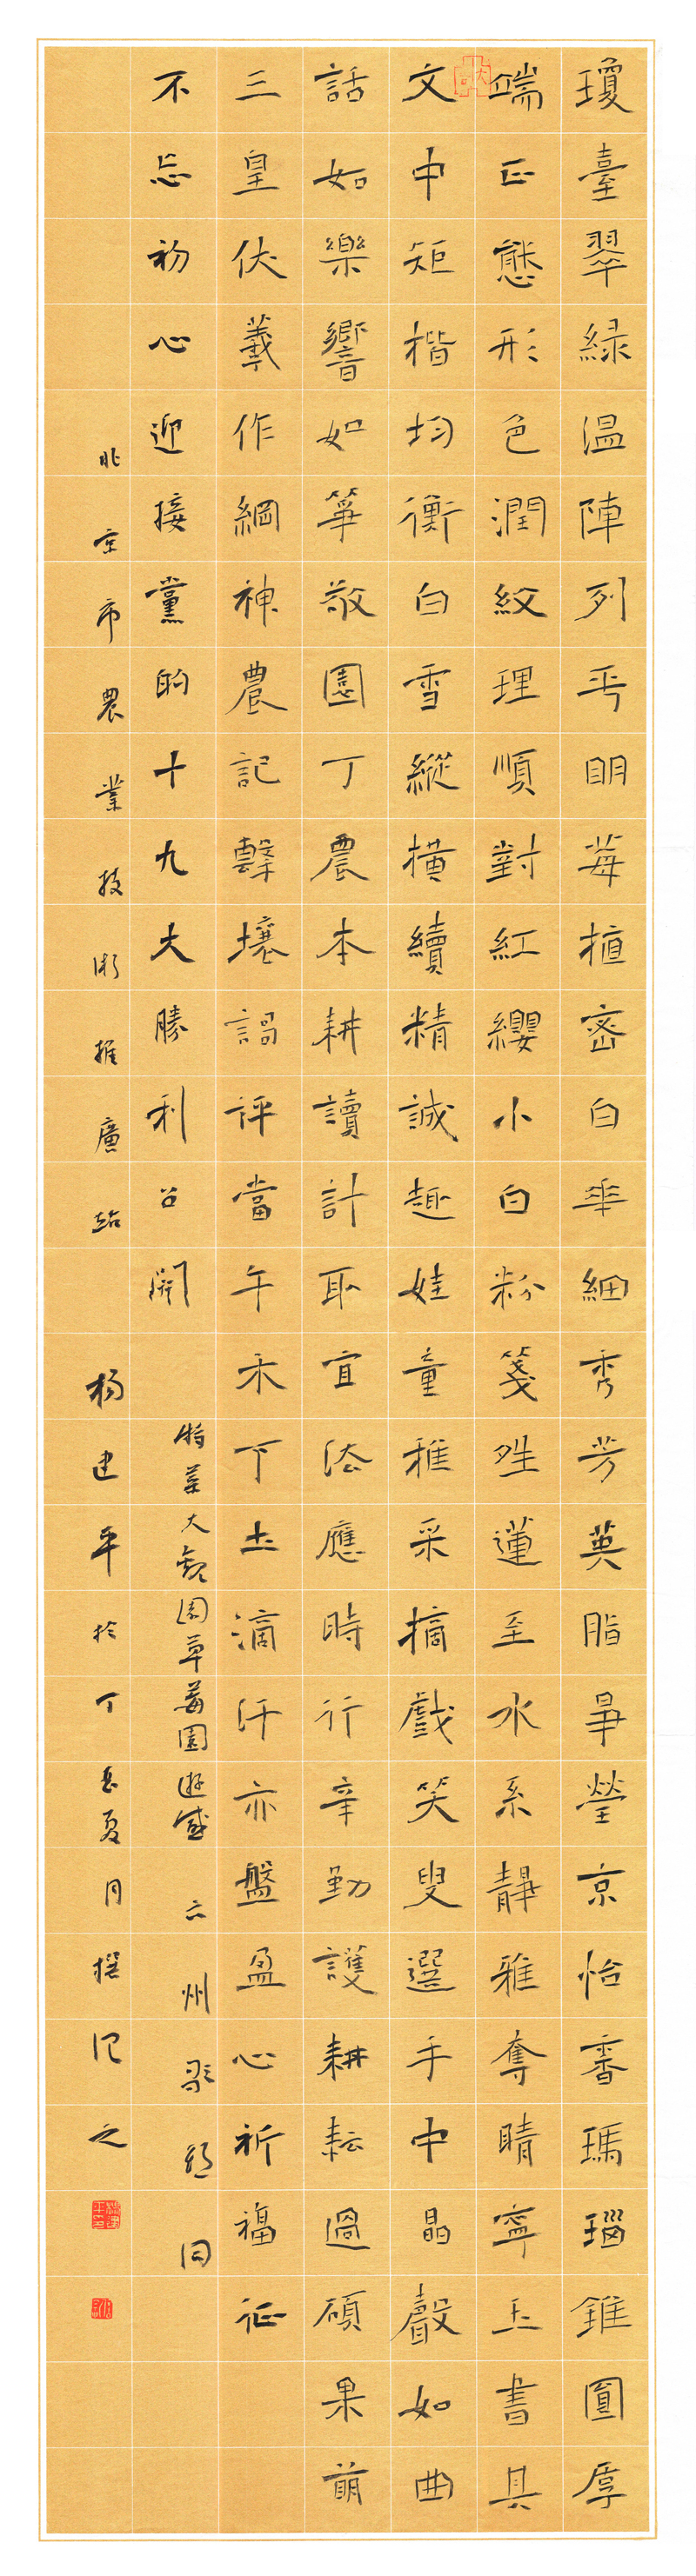 瓊臺翠緑温陣列平明莓植密白華細秀芳英脂鼻瑩京怡香瑪瑙錐圓厚
端正態形色潤紋理順對紅纓小白粉箋甡蓮至水系靜雅奪睛寧玉書具
文中矩楷均衡白雪縱橫續精誠趣娃童稚采摘戲笑叟選手中晶聲如曲
話如樂響如箏敬園丁農本耕讀計取宜法應時行辛勤護耕耘過碩果萌
三皇伏羲作網神農記聲壤謌評當午禾下土滴汗亦盤盈心祈福征
不忘初心迎接黨的十九大勝利召開
特菜大觀園草莓園遊感 六州歌頭 同
北京市農業技術推廣站 楊建平於丁酉夏月撰記之